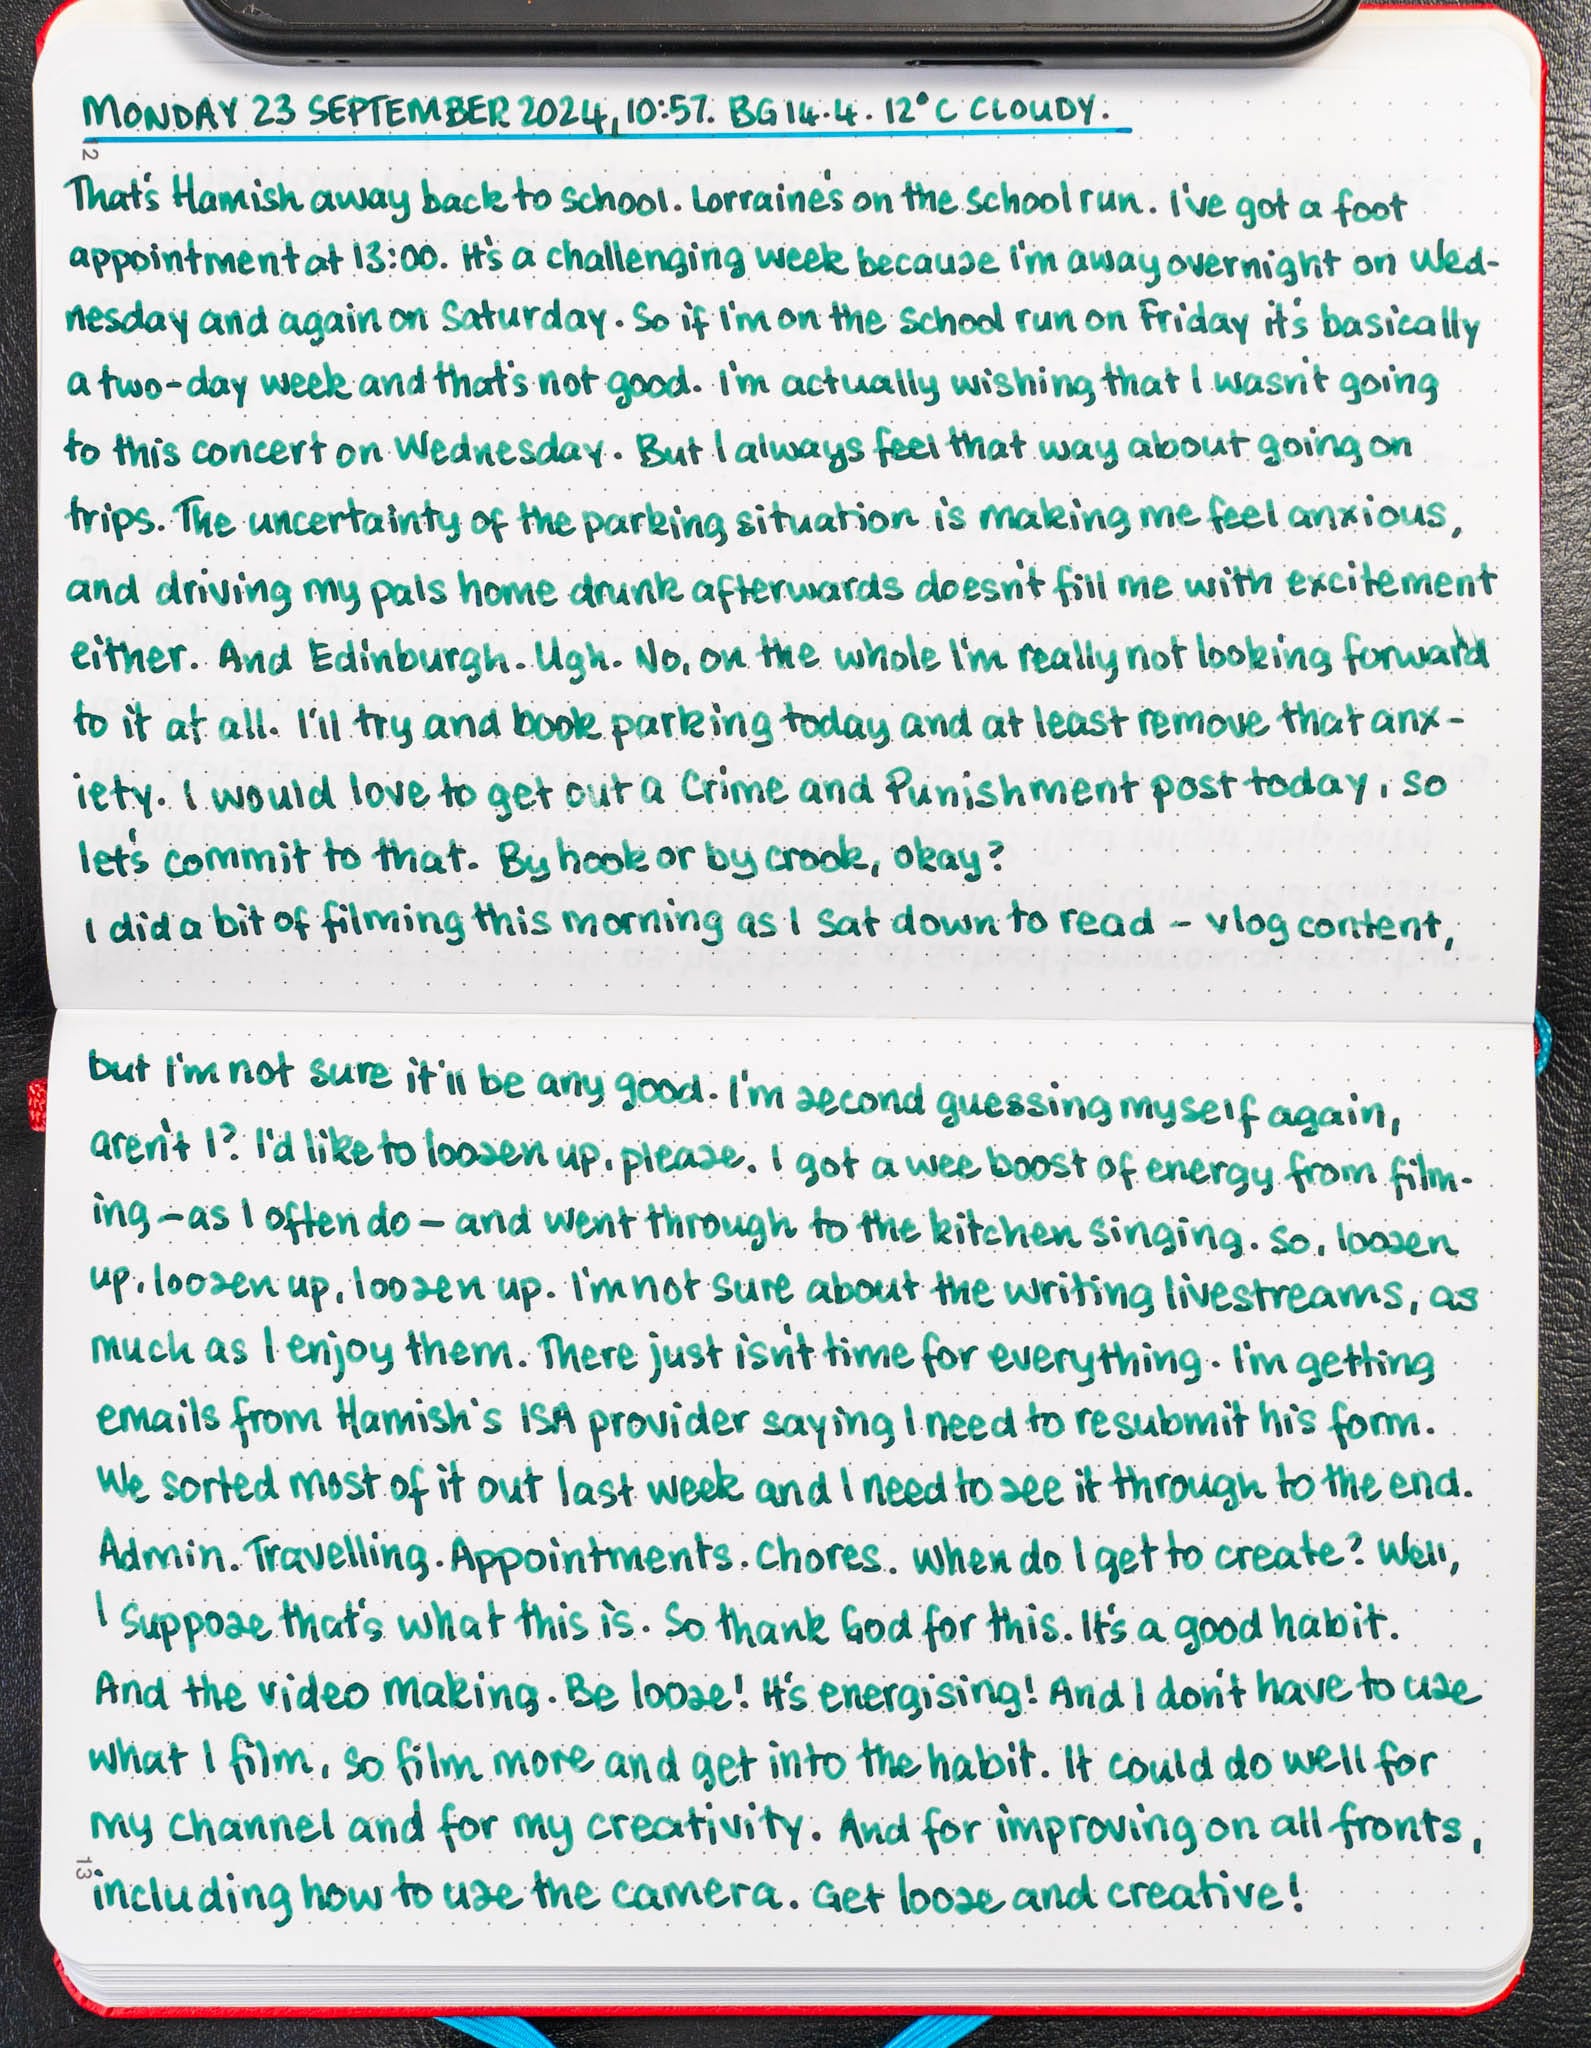 MONDAY 23 SEPTEMBER 2024, 10:57. BG 14.4. 12°C CLOUDY.
12
That's Hamish away back to school. Lorraine's on the school run. I've got a foot
appointment at 13:00. It's a challenging week because I'm away overnight on Wed-
nesday and again on Saturday. So if I'm on the school run on Friday it's basically
a two-day week and that's not good. I'm actually wishing that I wasn't going
to this concert on Wednesday. But I always feel that way about going on
trips. The uncertainty of the parking situation is making me feel anxious,
and driving my pals home drunk afterwards doesn't fill me with excitement
either. And Edinburgh. Ugh. No, on the whole I'm really not looking forward
to it at all. I'll try and book parking today and at least remove that anx-
iety. I would love to get out a Crime and Punishment post today, so
let's commit to that. By hook or by crook, okay?
I did a bit of filming this morning as I sat down to read – vlog content,
but I'm not sure it'll be any good. I'm second guessing myself again,
aren't I? I'd like to loosen up, please. I got a wee boost of energy from film-
ing – as I often do – and went through to the kitchen singing. So, loosen
up, loosen up, loosen up. I'm not sure about the writing livestreams, as
much as I enjoy them. There just isn't time for everything. I'm getting
emails from Hamish's ISA provider saying I need to resubmit his form.
We sorted most of it out last week and I need to see it through to the end.
Admin. Travelling. Appointments. Chores. When do I get to create? Well,
I suppose that's what this is. So thank God for this. It's a good habit.
And the video making. Be loose! It's energising! And I don't have to use
what I film, so film more and get into the habit. It could do well for
my channel and for my creativity. And for improving on all fronts,
13
including how to use the camera. Get loose and creative!